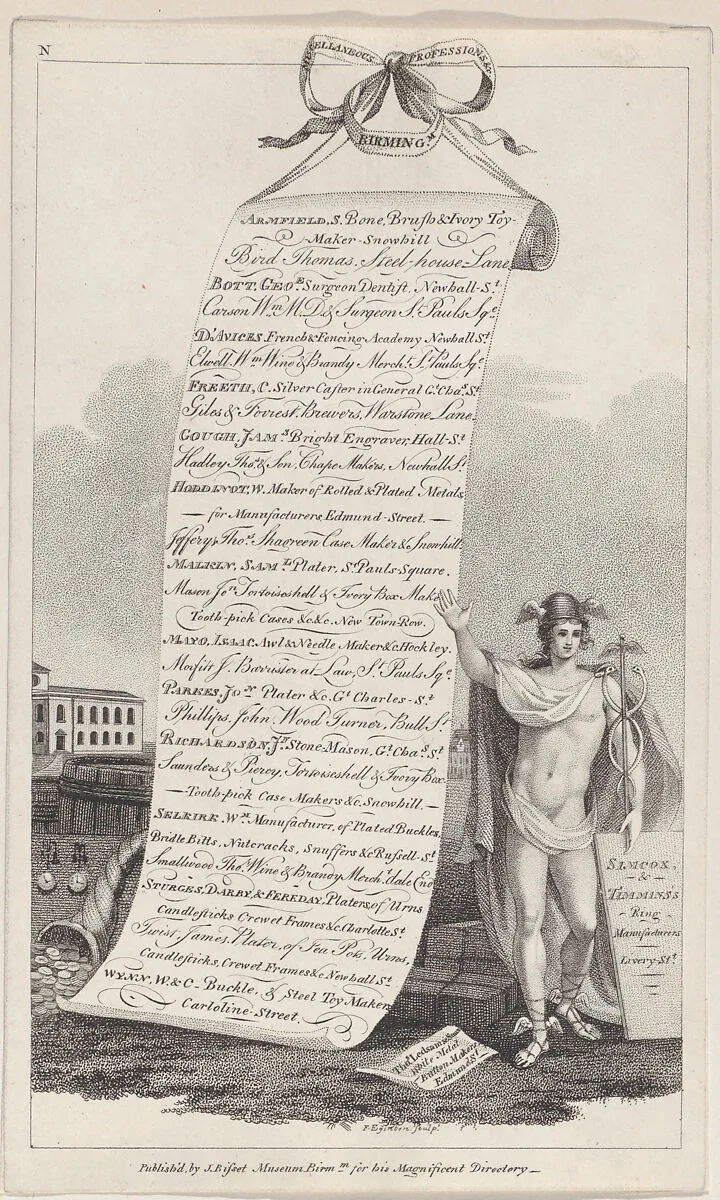 N
MISCELLANEOUS PROFESSIONS &c
BIRMINGM
ARMFIELD, S. Bone, Brush & Ivory Toy-
Maker-Snowhill
Bird Thomas. Steel-house-Lane
BOTT, GEOE. Surgeon Dentist, Newhall-St.
Carson Wm. M.D & Surgeon St. Pauls Sqe.
D'AVICES, French & Fencing Academy Newhall St
Elwell, Wm Wine & Brandy Mercht. St. Pauls Sqe.
FREETH, C. Silver Caster in General Gt. Chas. St.
Giles & Forrest, Brewers, Warstone Lane
GOUGH, JAMS. Bright Engraver, Hall-St.
Hadley Thos. & Son, Chape Makers, Newhall St.
HODDINOT, W. Maker of Rolled & Plated Metals
— for Manufacturers, Edmund-Street. —
Jefferys Thos. Shagreen Case Maker &c Snowhill
MALKIN, SAML. Plater, St. Pauls-Square.
Mason Jos. Tortoiseshell & Ivory Box Make
Tooth-pick Cases &c. &c. New Town-Row.
MAYO, ISAAC, Awl & Needle Maker &c Hockley.
Morfitt J. Barrister at Law, St. Pauls Sqe.
PARKES, JON Plater &c. Gt Charles-St
Phillips, John, Wood Turner, Bull St.
RICHARDSON, Jn. Stone-Mason, Gt. Chas St
Saunders & Piercy, Tortoiseshell & Ivory Box
—Tooth-pick Case Makers &c. Snowhill.—
SELKIRE, WM. Manufacturer, of Plated Buckles,
Bridle Bitts, Nutcracks, Snuffers &c Russell-St
Smallwood Thos. Wine & Brandy Mercht. dale End
STURGES, DARBY, & FEREDAY, Platers, of Urns
Candlesticks Crewet Frames &c. Charlotte St.
Twist, James, Plater, of Tea Pots, Urns,
Candlesticks, Crewet Frames &c Newhall St
WYNN, W. & C- Buckle, & Steel Toy Maker
Carloline-Street.
SIMCOX,
&
TIMMINS'S
Ring
Manufacturers
Livery-St.
Thos. Ledsam
White Metal
Button Maker
Edmund St.
F. Eginton Sculpt.
Publish'd, by J. Bisset Museum Birmm. for his Magnificent Directory—